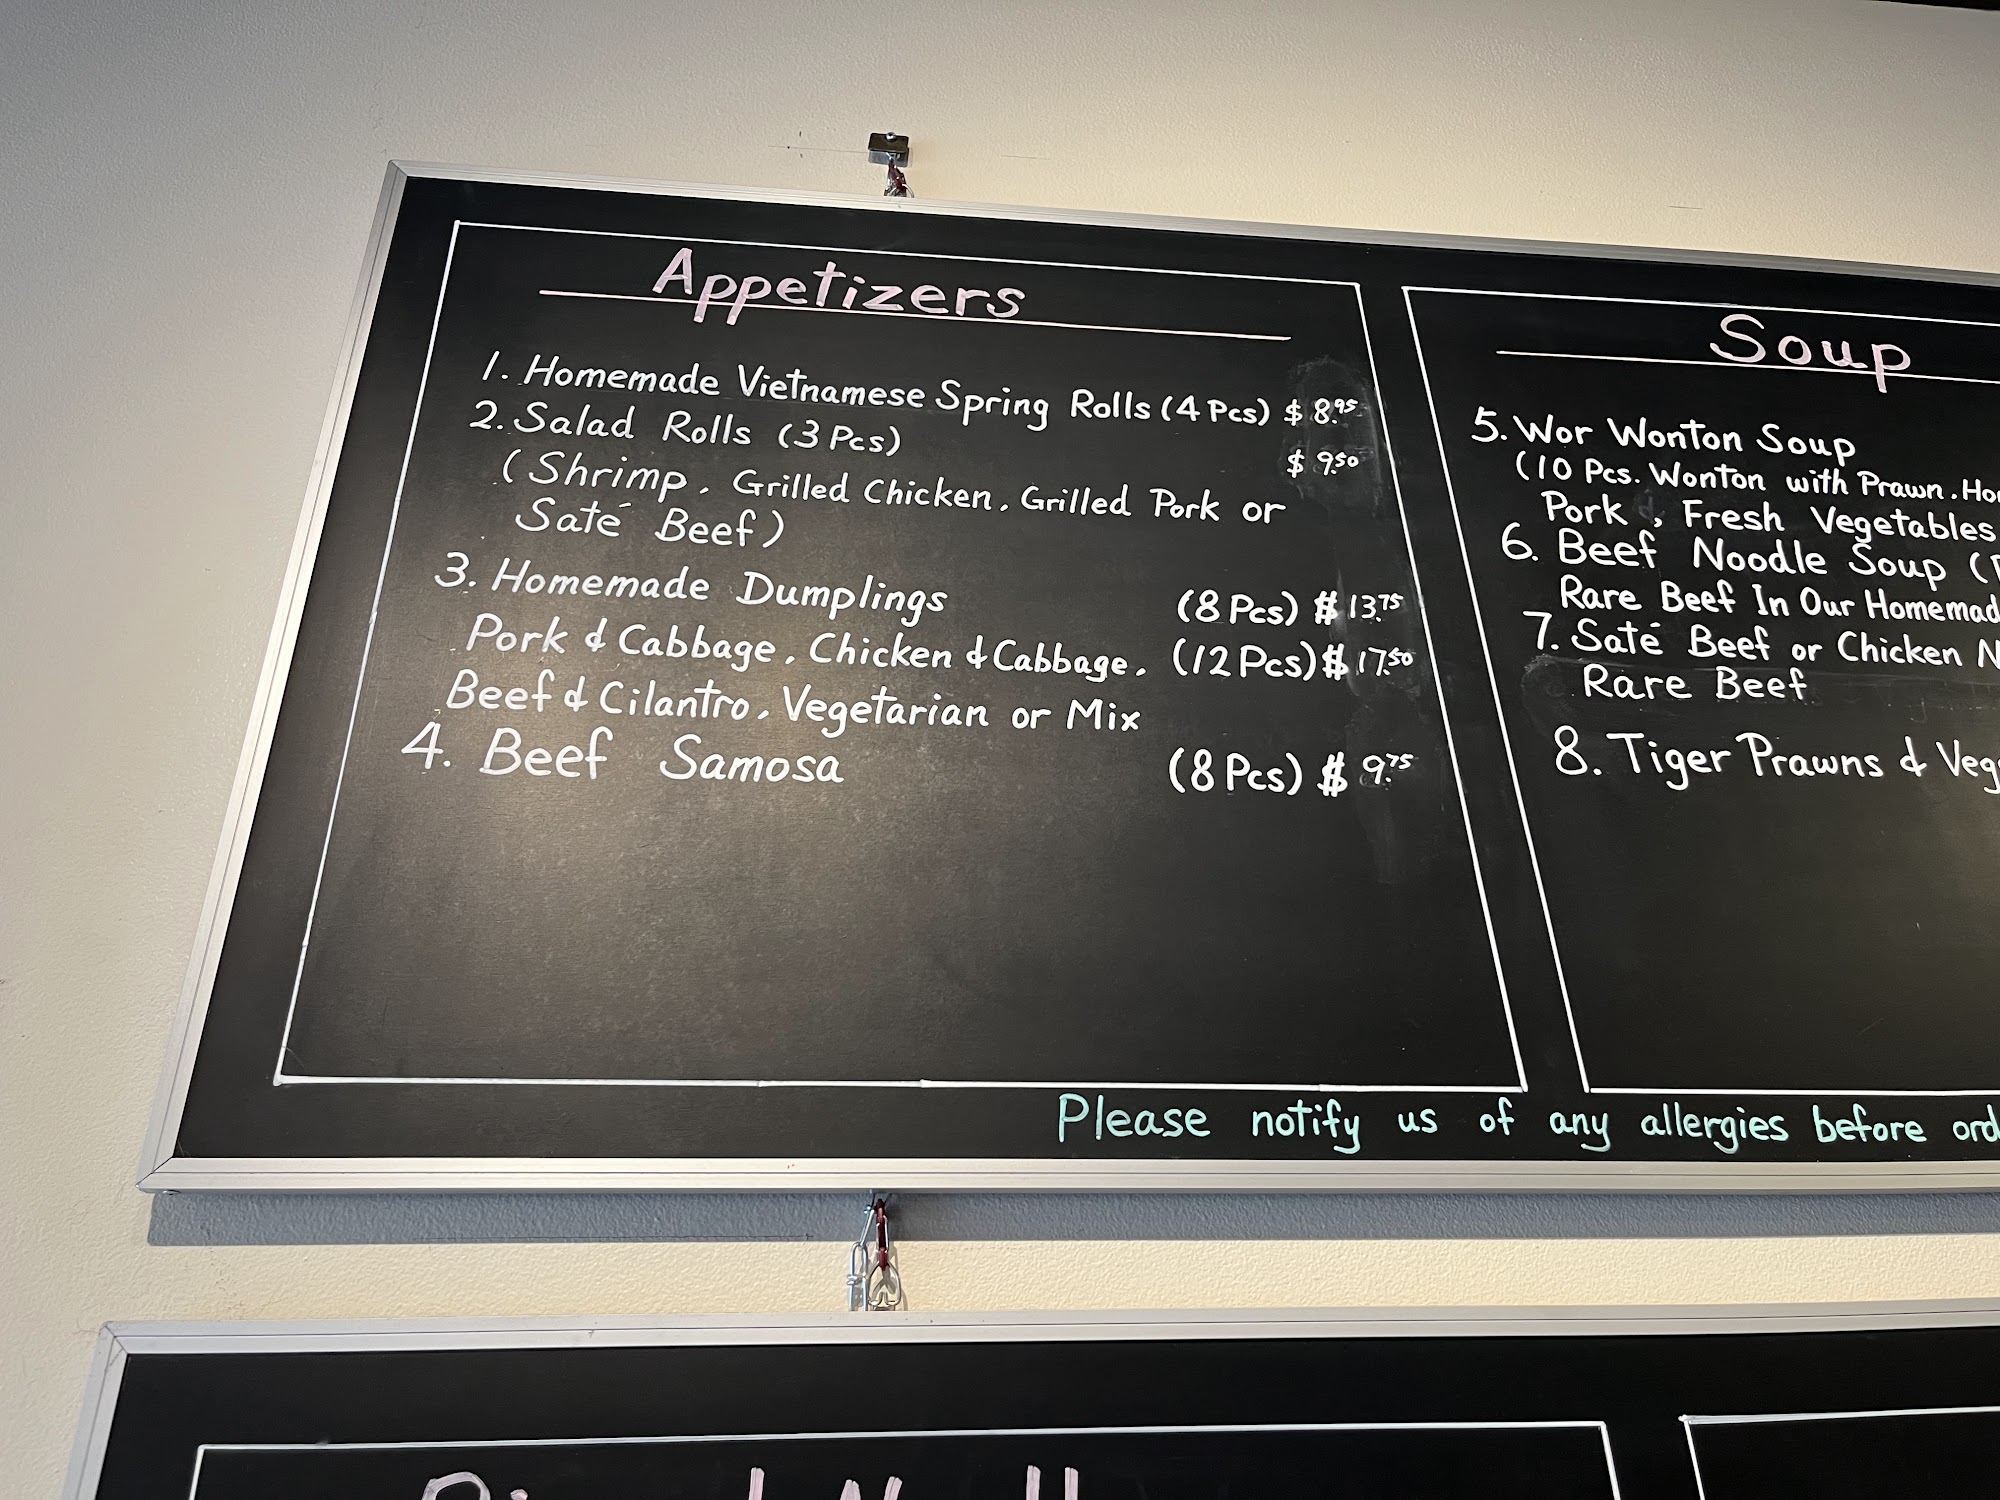 Appetizers
1. Homemade Vietnamese Spring Rolls (4 Pcs) $ 8.95
2. Salad Rolls (3 Pcs) $ 9.50
(Shrimp, Grilled Chicken, Grilled Pork or
Saté Beef)
3. Homemade Dumplings (8 Pcs) $ 13.75
Pork & Cabbage, Chicken & Cabbage, (12 Pcs) $ 17.50
Beef & Cilantro, Vegetarian or Mix
4. Beef Samosa (8 Pcs) $ 9.75
Soup
5. Wor Wonton Soup
(10 Pcs. Wonton with Prawn.
Pork & , Fresh Vegetables
6. Beef Noodle Soup (
Rare Beef In Our
7. Saté Beef or Chicken
Rare Beef
8. Tiger Prawns &
Please notify us of any allergies before